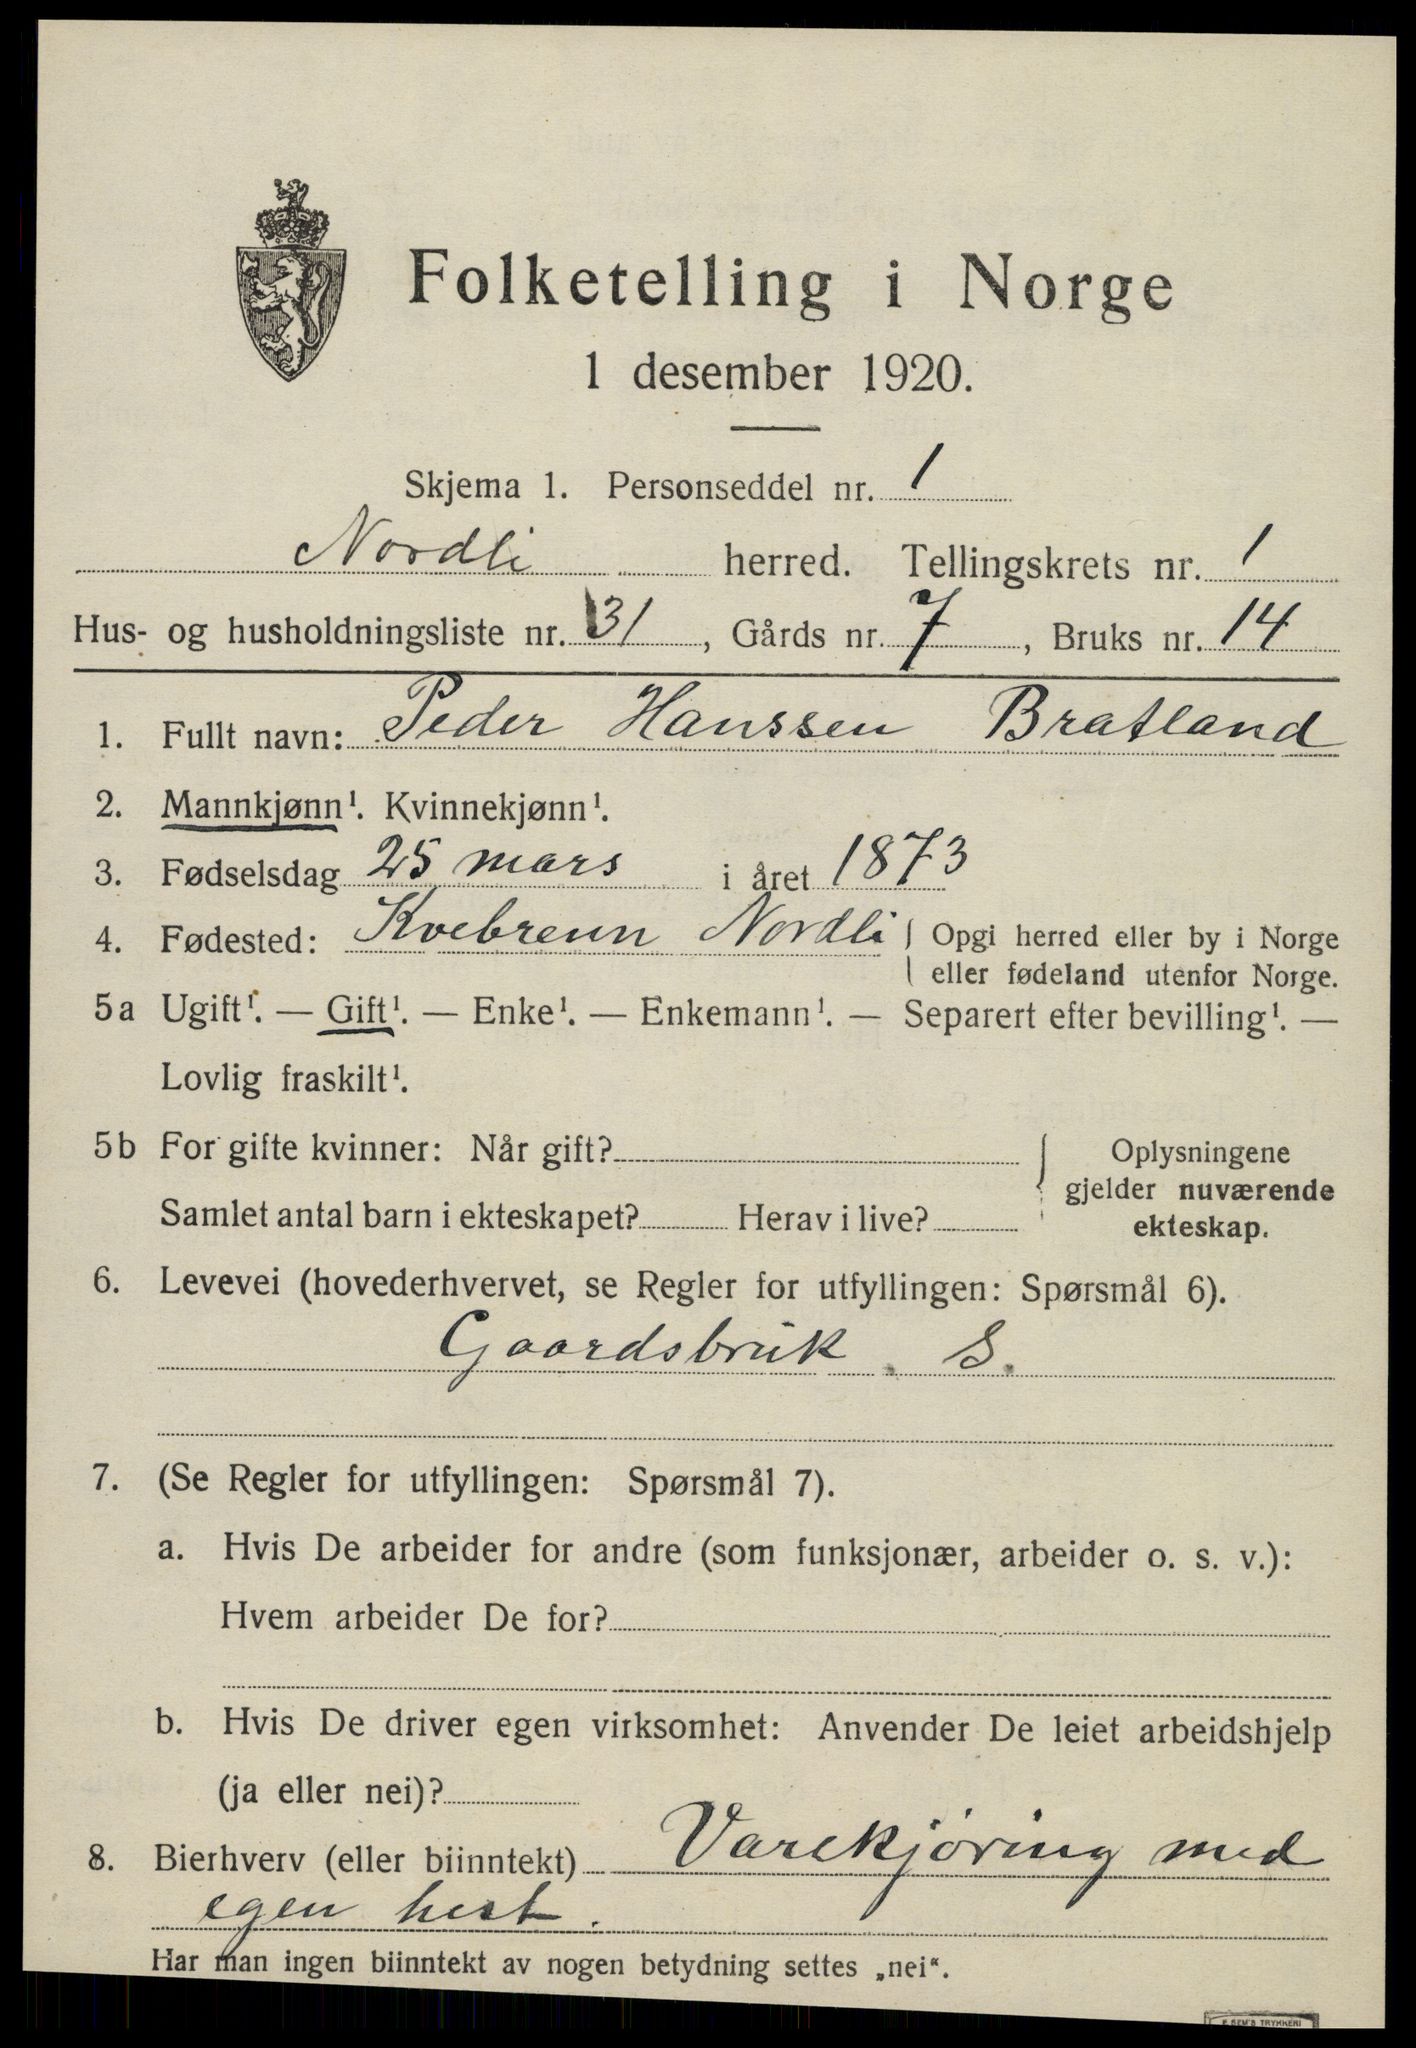 Folketelling i Norge
1 desember 1920.
Skjema 1. Personseddel nr. 1
Nordli herred. Tellingskrets nr. 1
Hus- og husholdningsliste nr. 31, Gårds nr. 7, Bruks nr. 14
1. Fullt navn: Peder Hanssen Bratland
2. Mannkjønn¹. Kvinnekjønn¹.
3. Fødselsdag 25 mars i året 1873
4. Fødested: Kvebrenn Nordli Opgi herred eller by i Norge
eller fødeland utenfor Norge.
5a Ugift¹. — Gift¹. — Enke¹. — Enkemann¹. — Separert efter bevilling¹. —
Lovlig fraskilt¹.
5b For gifte kvinner: Når gift? Oplysningene
gjelder nuværende
Samlet antal barn i ekteskapet? Herav i live? ekteskap.
6. Levevei (hovederhvervet, se Regler for utfyllingen: Spørsmål 6).
Gaardsbruk. S.
7. (Se Regler for utfyllingen: Spørsmål 7).
a. Hvis De arbeider for andre (som funksjonær, arbeider o. s. v.):
Hvem arbeider De for?
b. Hvis De driver egen virksomhet: Anvender De leiet arbeidshjelp
(ja eller nei)?
8. Bierhverv (eller biinntekt) Varekjøring med
egen hest.
Har man ingen biinntekt av nogen betydning settes „nei“.
E SEM'S TRYKKERI